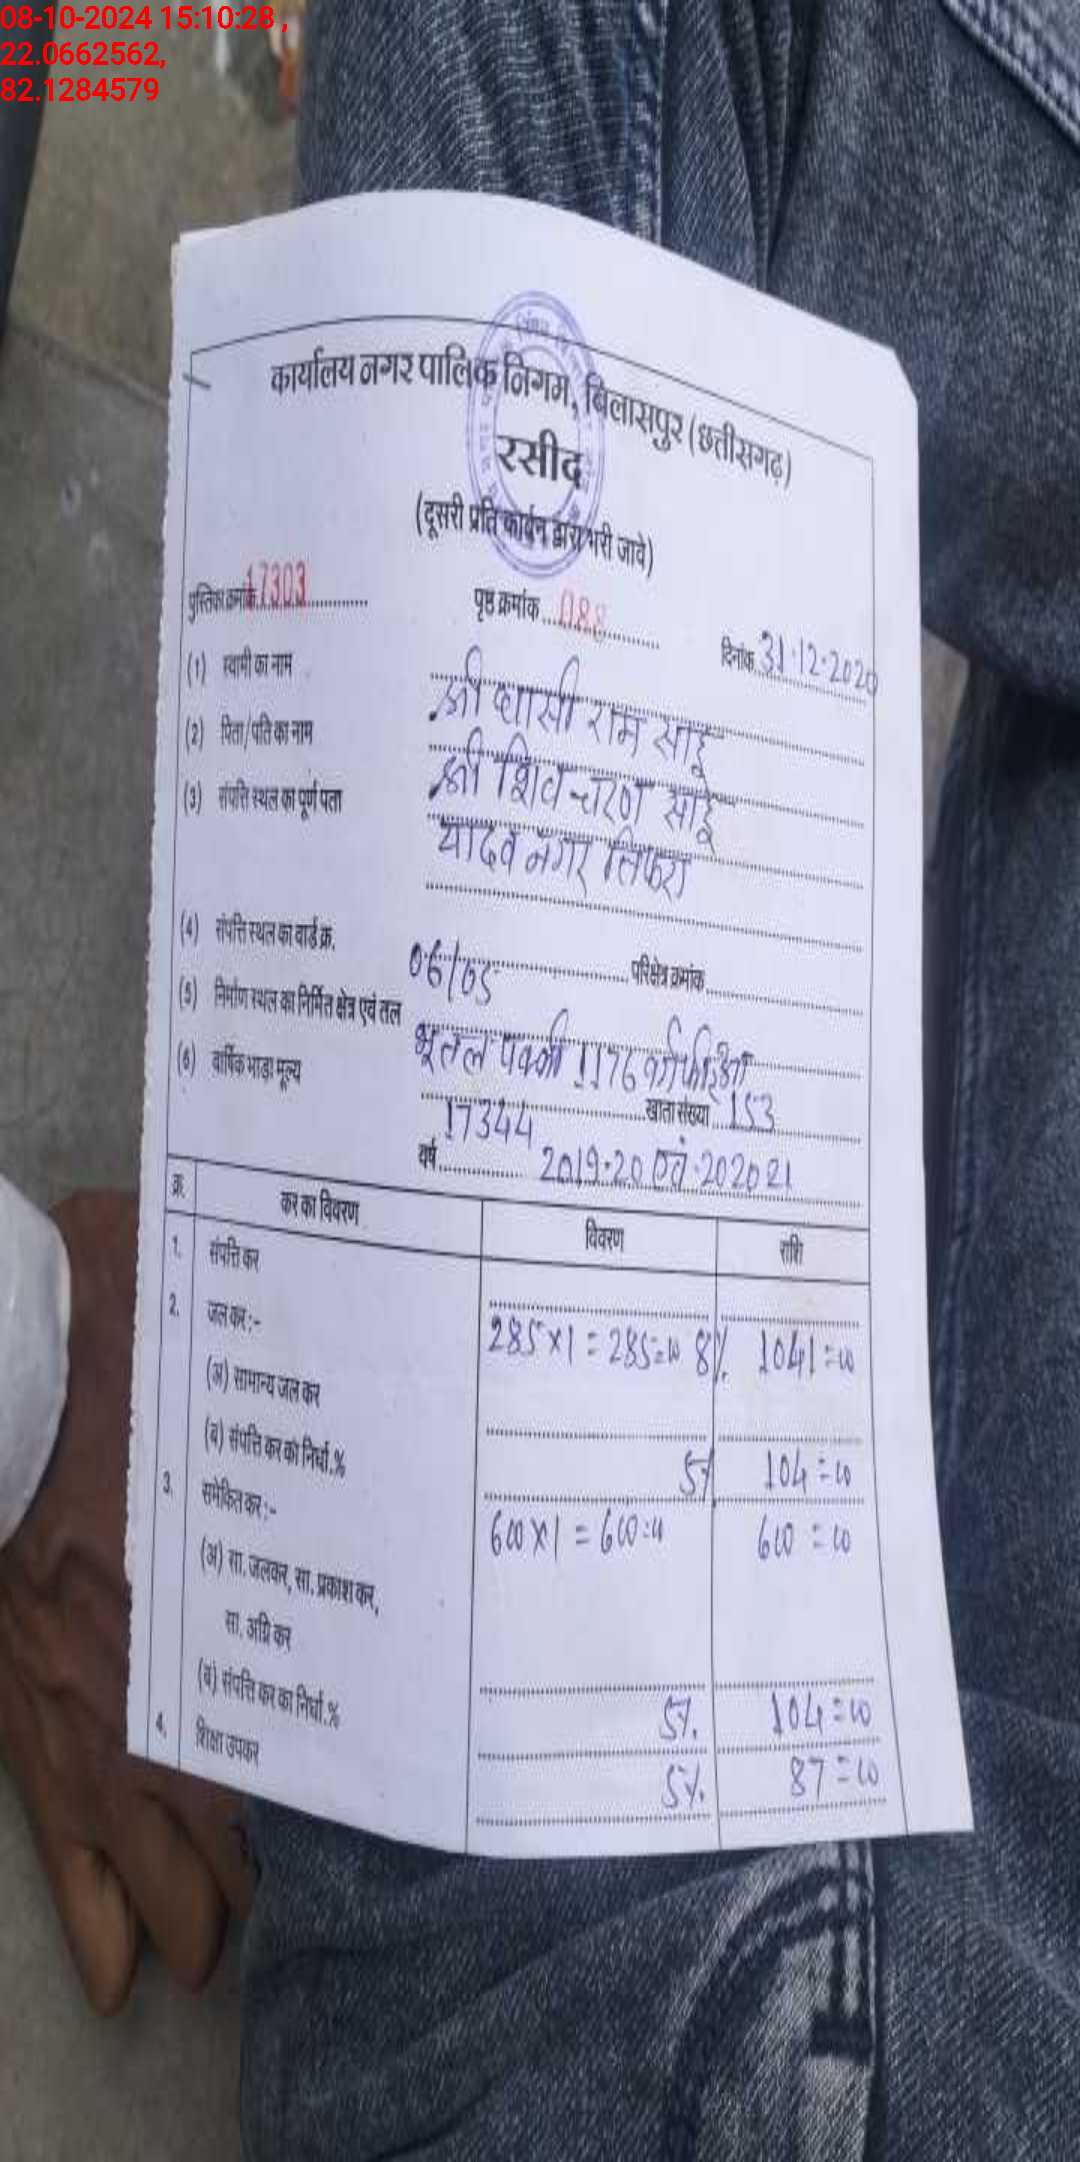 08-10-2024 15:10:28 ,
22.0662562,
82.1284579
कार्यालय नगर पालिक निगम, बिलासपुर (छत्तीसगढ़)
रसीद
(दूसरी प्रति कार्बन द्वारा भरी जावे)
पुस्तिका क्रमांक 17303 पृष्ठ क्रमांक 088 दिनांक 31.12.2020
(1) स्वामी का नाम श्री घासी राम साहू
(2) पिता/पति का नाम श्री शिव चरण साहू
(3) संपत्ति स्थल का पूर्ण पता यादव नगर तिफरा
(4) संपत्ति स्थल का वार्ड क्र. 06/05 परिक्षेत्र क्रमांक
(5) निर्माण स्थल का निर्मित क्षेत्र एवं तल भूतल पक्की 1176 वर्गफीट
(6) वार्षिक भाड़ा मूल्य 17344 खाता संख्या 153
वर्ष 2019-20 एवं 2020 21
क्र. कर का विवरण विवरण राशि
1. संपत्ति कर 285×1 = 285=00 8% 1041=00
2. जल कर :-
(अ) सामान्य जल कर
(ब) संपत्ति कर का निर्धा.% 5% 104=00
3. समेकित कर :- 600×1 = 600=00 600=00
(अ) सा. जलकर, सा. प्रकाश कर,
सा. अग्नि कर
(ब) संपत्ति कर का निर्धा.% 5% 104=00
4. शिक्षा उपकर 5% 87=00